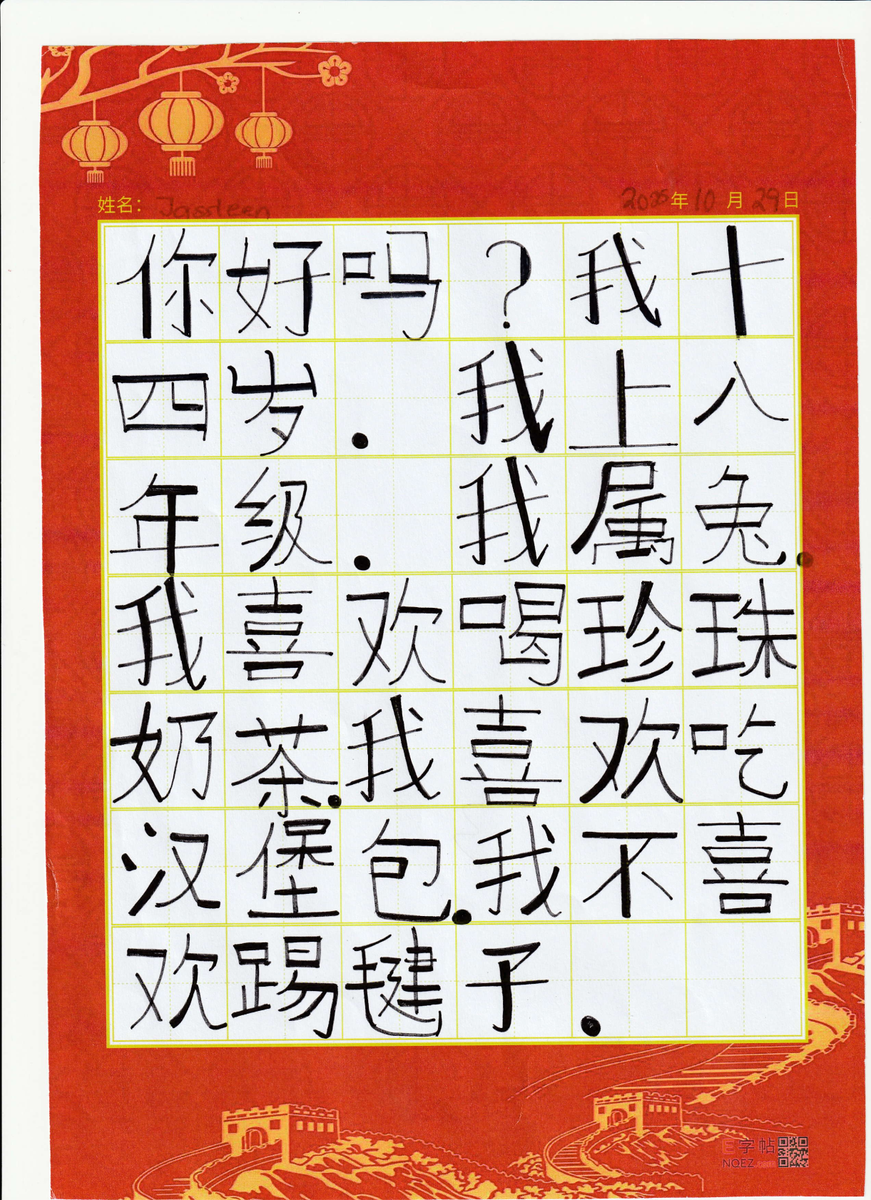 姓名： Jassleen 2025年 10月 29日
你好吗？我十
四岁．我上八
年级．我属兔．
我喜欢喝珍珠
奶茶．我喜欢吃
汉堡包．我不喜
欢踢毽子．
字帖
NOEZ